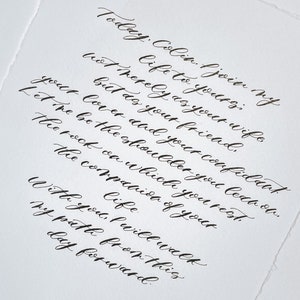 Today, Colin, I join my
life to yours;
not merely as your wife
but as your friend
your lover and your confidant
Let me be the shoulder you lean on
the rock on which you rest
the companion of your
life
With you, I will walk
my path from this
day forward.